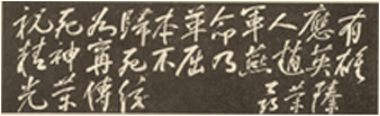 視死如歸本革命軍人應有
精神寧死不屈乃燕趙英雄
光榮傳統 聶榮臻